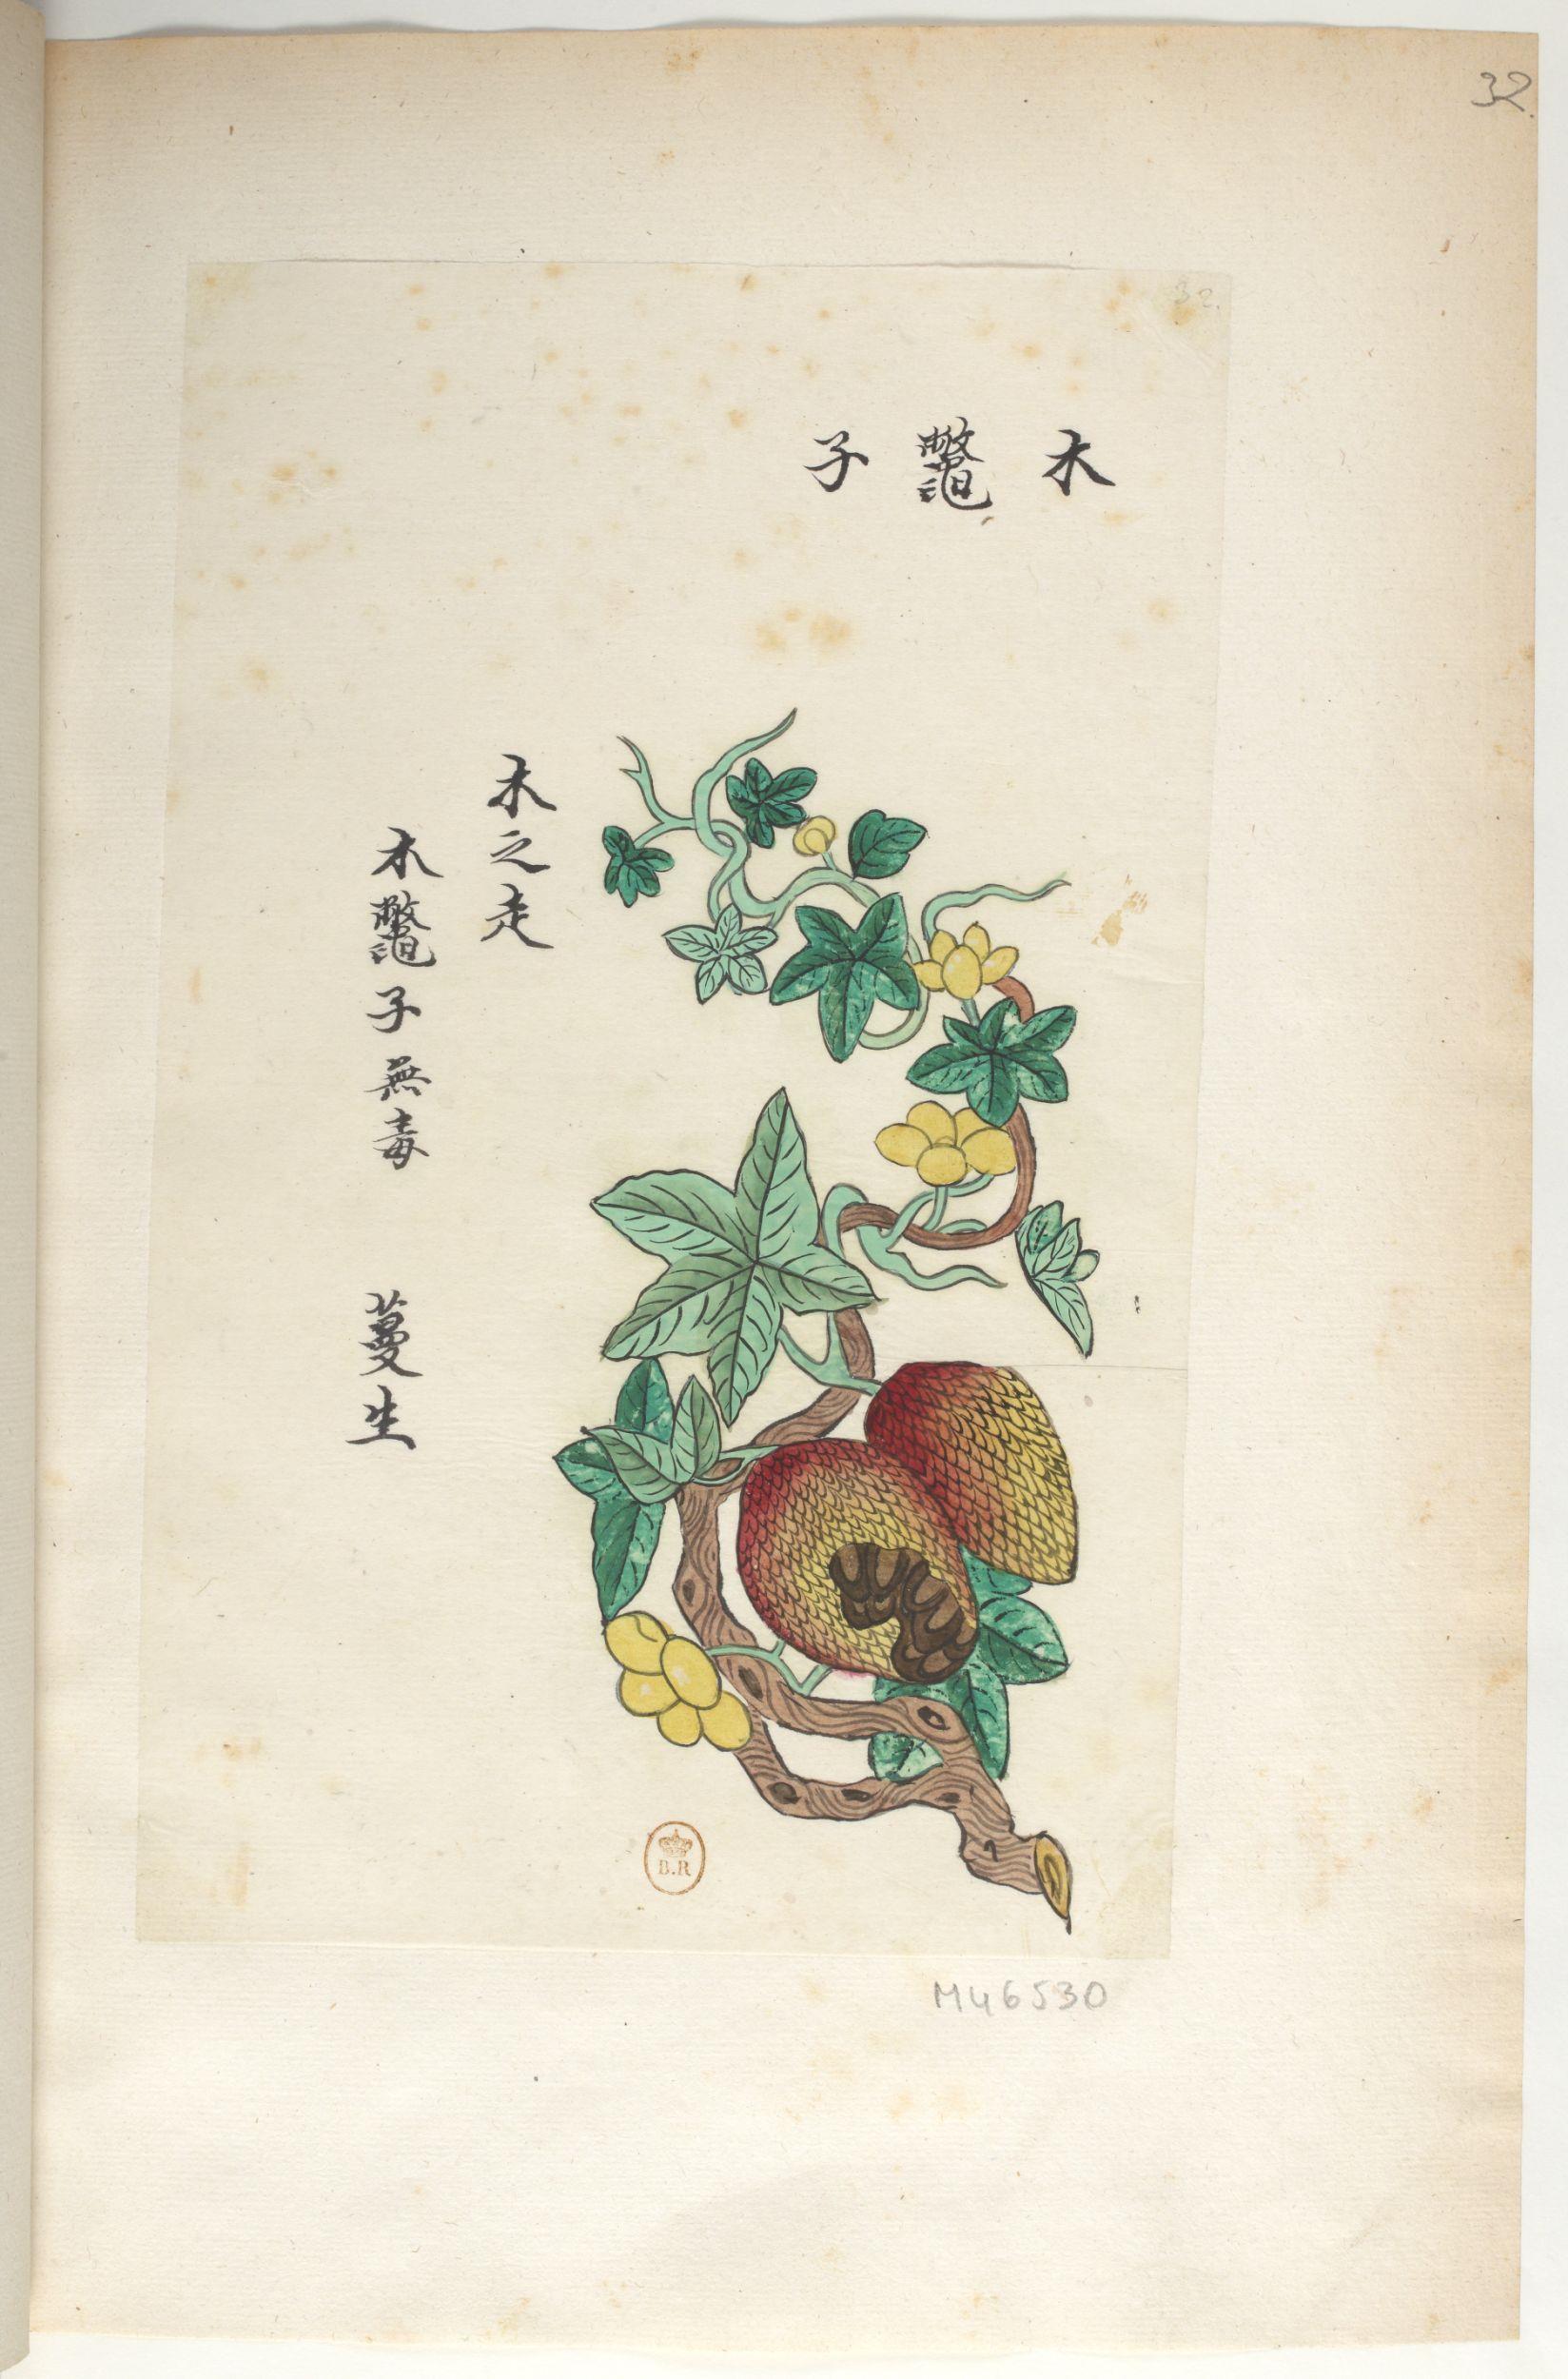 32
32.
木鼈子
木之走
木鼈子無毒 蔓生
B.R
M46530